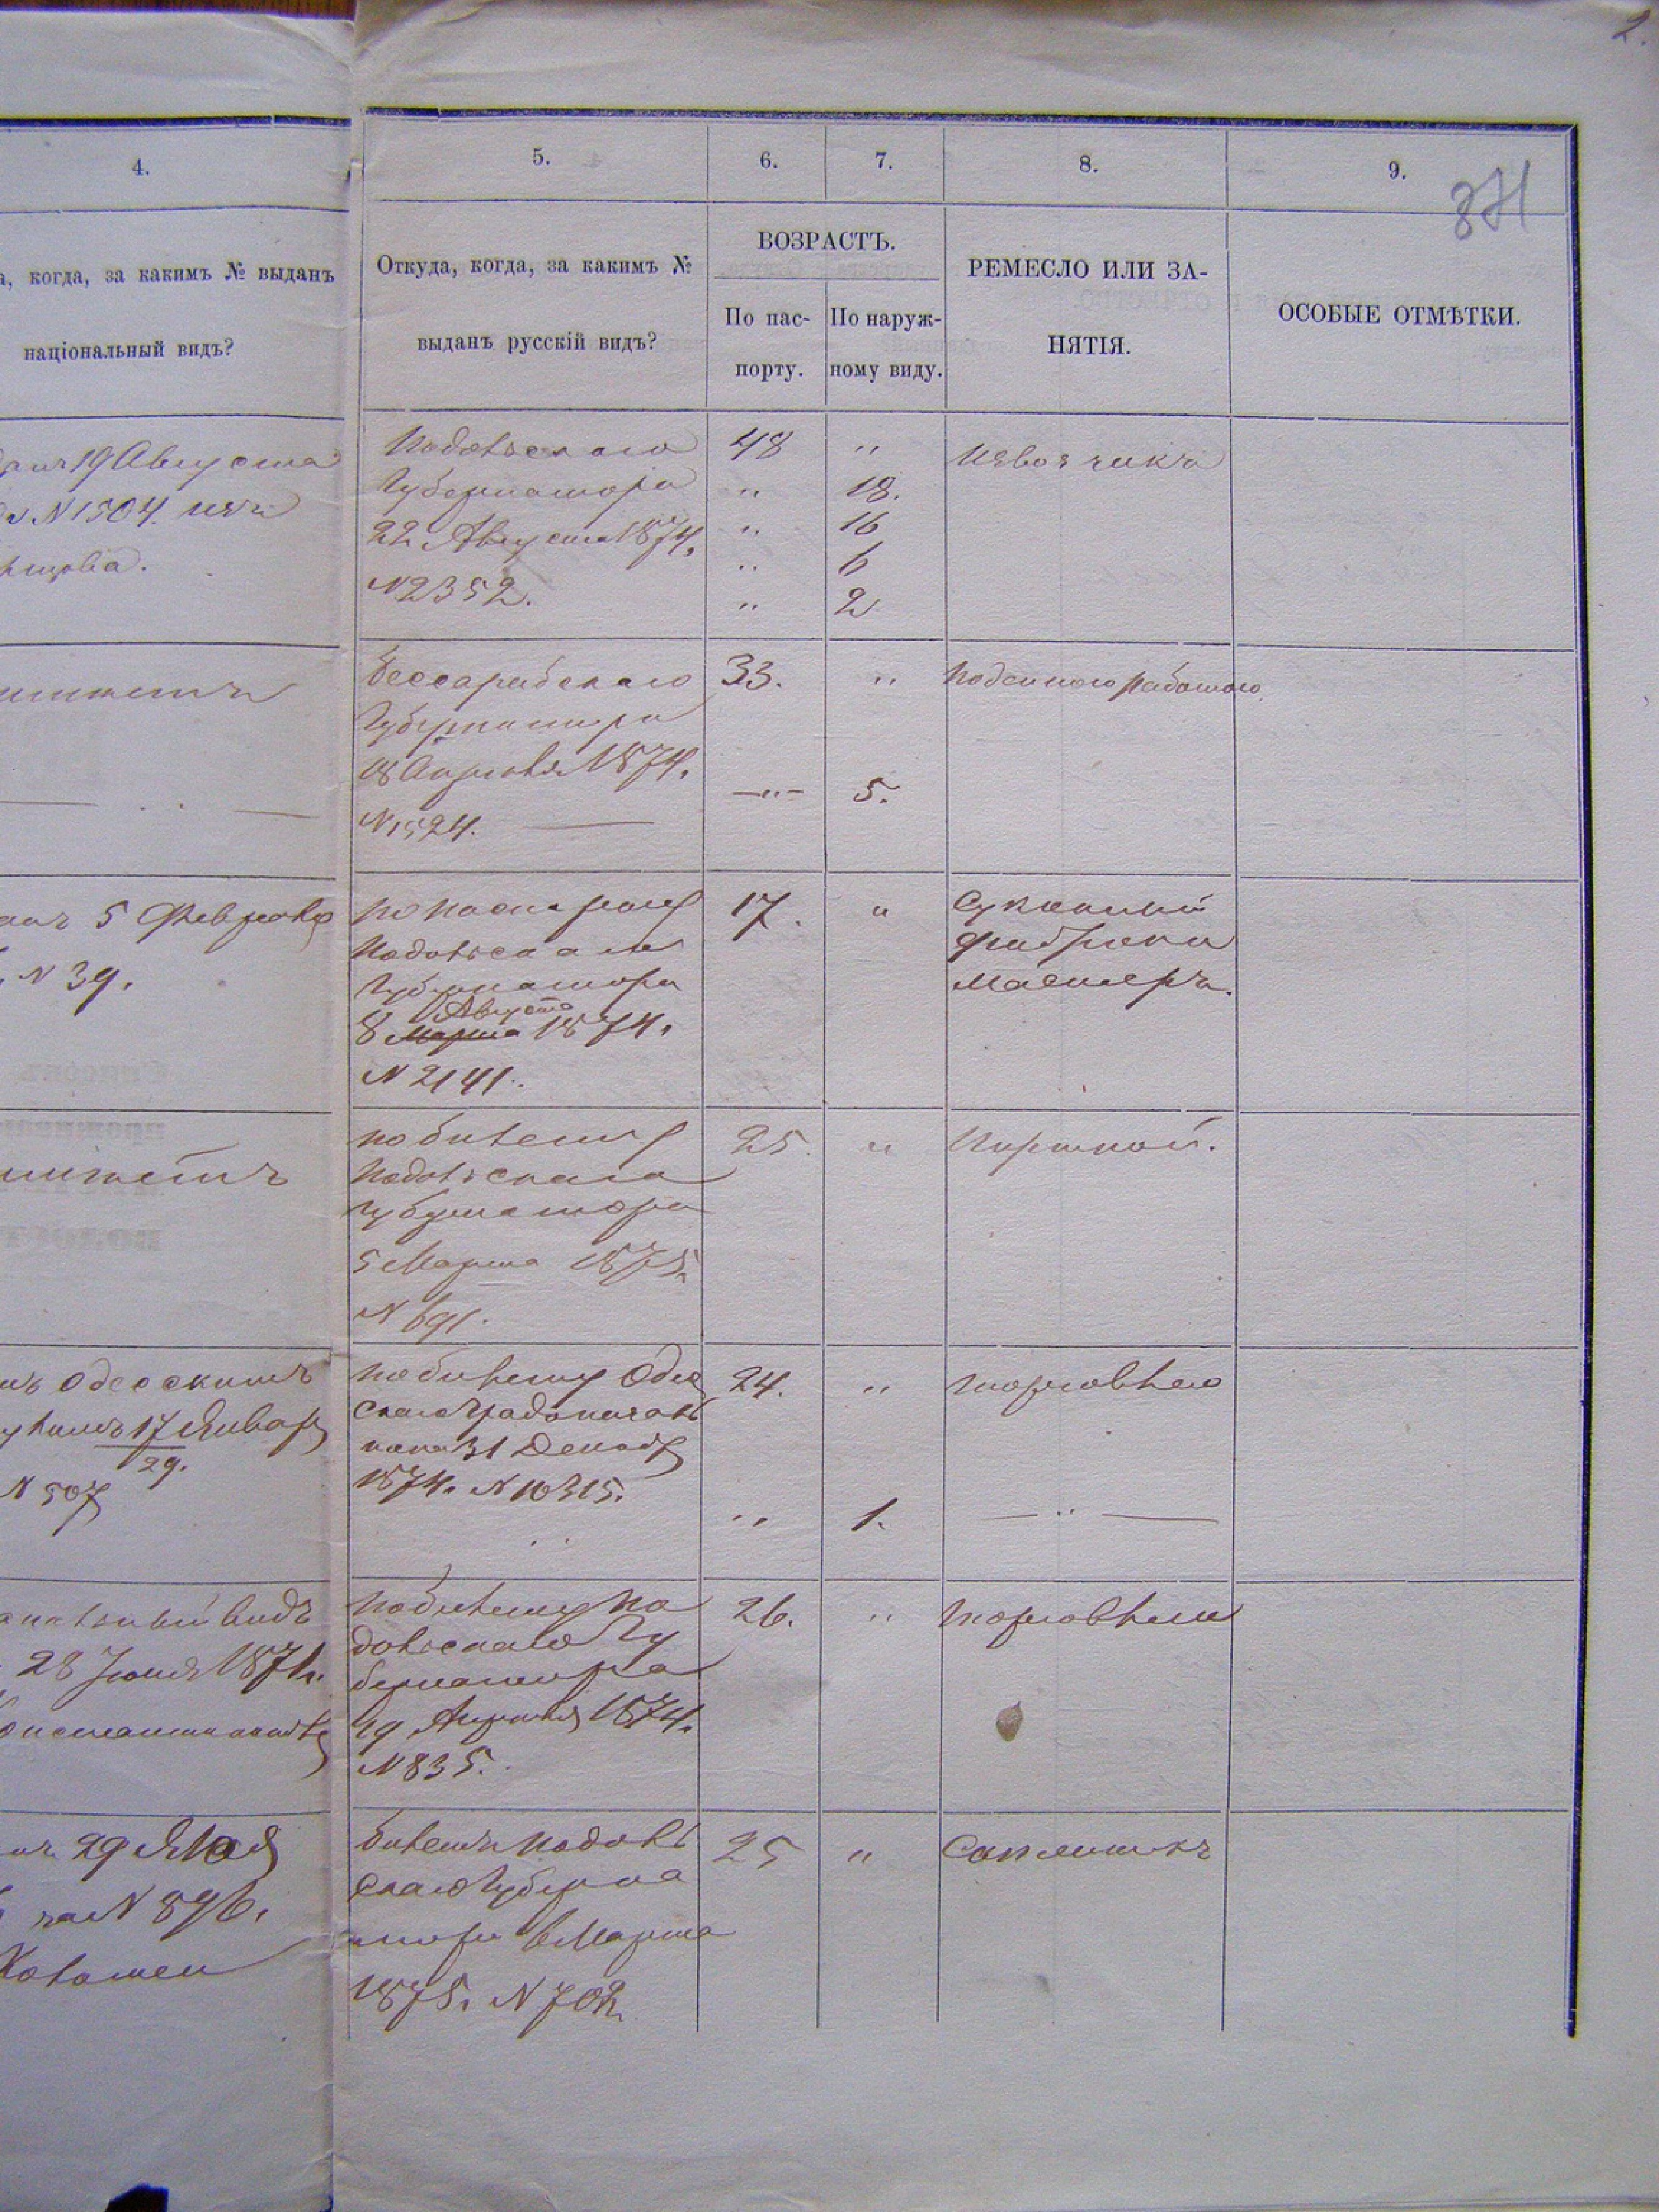 2.
4.
5.
6.
7.
8.
9.
371
а, когда, за какимъ № выданъ
національный видъ?
Откуда, когда, за какимъ №
выданъ русскій видъ?
ВОЗРАСТЪ.
По пас-
порту.
По наруж-
ному виду.
РЕМЕСЛО ИЛИ ЗА-
НЯТІЯ.
ОСОБЫЕ ОТМѢТКИ.
19 Августа
№ 1504.
Подольскаго
Губернатора
22 Августа 1874.
№ 2352.
48 "
" 18.
" 16
" 6
" 2
Извозчикъ
Бессарабскаго
Губернатора
18 Апрѣля 1874.
№ 1524.
33. "
—"— 5.
Поденною работою
5 Февраля
№ 39.
По паспорту
Подольскаго
Губернатора
Августа
8 Марта 1874.
№ 2141.
17. "
Суконный
фабрики
мастеръ.
по билету
Подольскаго
Губернатора
5 Марта 1875.
№ 691.
25. "
Портной.
Одесскимъ
17 Январ
29.
№ 507
по билету Одес
скаго Градоначаль
ника 31 Декабр
1874. № 10315.
24. "
" 1.
торговлею
— " —
видъ
28 Іюня 1871.
по билету По
дольскаго Гу
бернатора
19 Апрѣля 1874.
№ 835.
26. "
торговлею
29 Мая
за № 896.
билетъ Подоль
скаго Губерна
тора 6 Марта
1875. № 702.
25 "
Сапожникъ